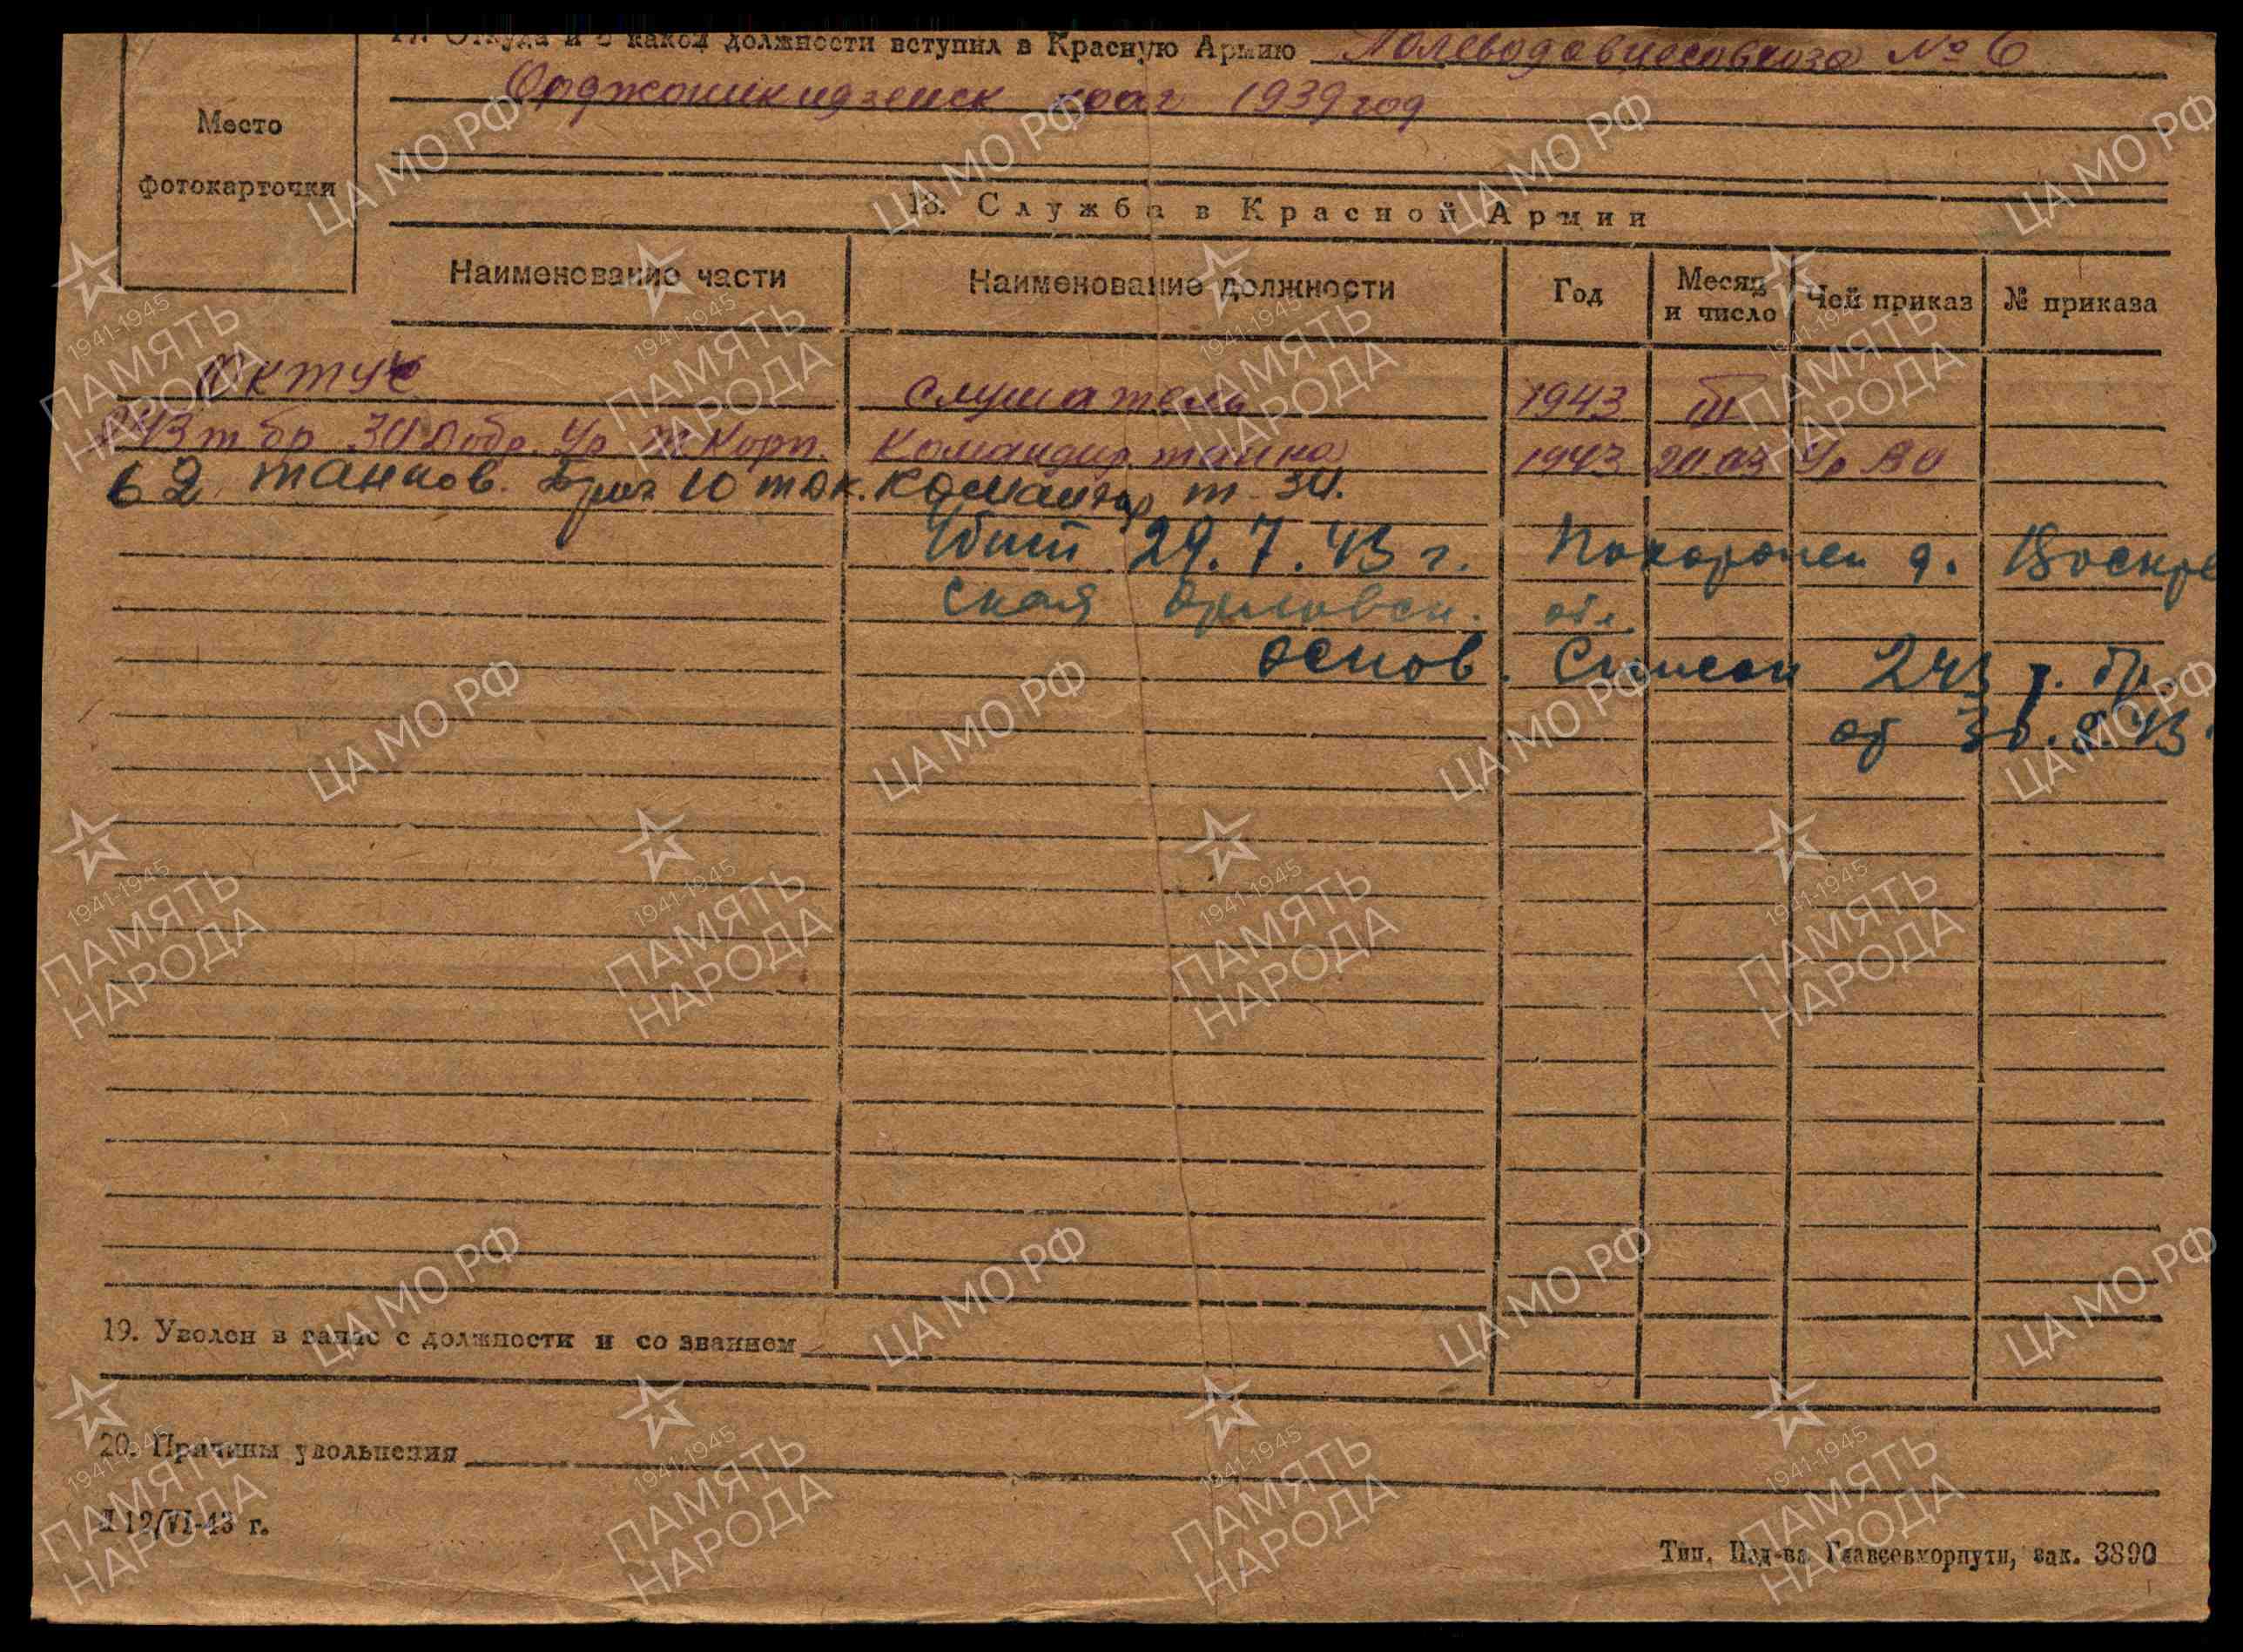 Откуда и с какой должности вступил в Красную Армию Полеводовцесовхоза № 6
Орджоникидзенск 1939 год
Место
фотокарточки
18. Служба в Красной Армии
Наименование части Наименование должности Год Месяц и число Чей приказ № приказа
слушатель 1943 III
243 т бр 30 Добр. Ур т Корп. Командир танка 1943 20.03 Ур ВО
62 танков. Бриг 10 т.к. Командир т-34.
Убит 29.7.43 г. Похоронен д. Воскре
ская Орловск. обл.
основ. Список 243 т. бр.
от 30.8.43
19. Уволен в запас с должности и со званием
20. Причины увольнения
12/VI-43 г.
Тип. Изд-ва Главсевморпути, зак. 3890
ЦА МО РФ
1941-1945
ПАМЯТЬ
НАРОДА